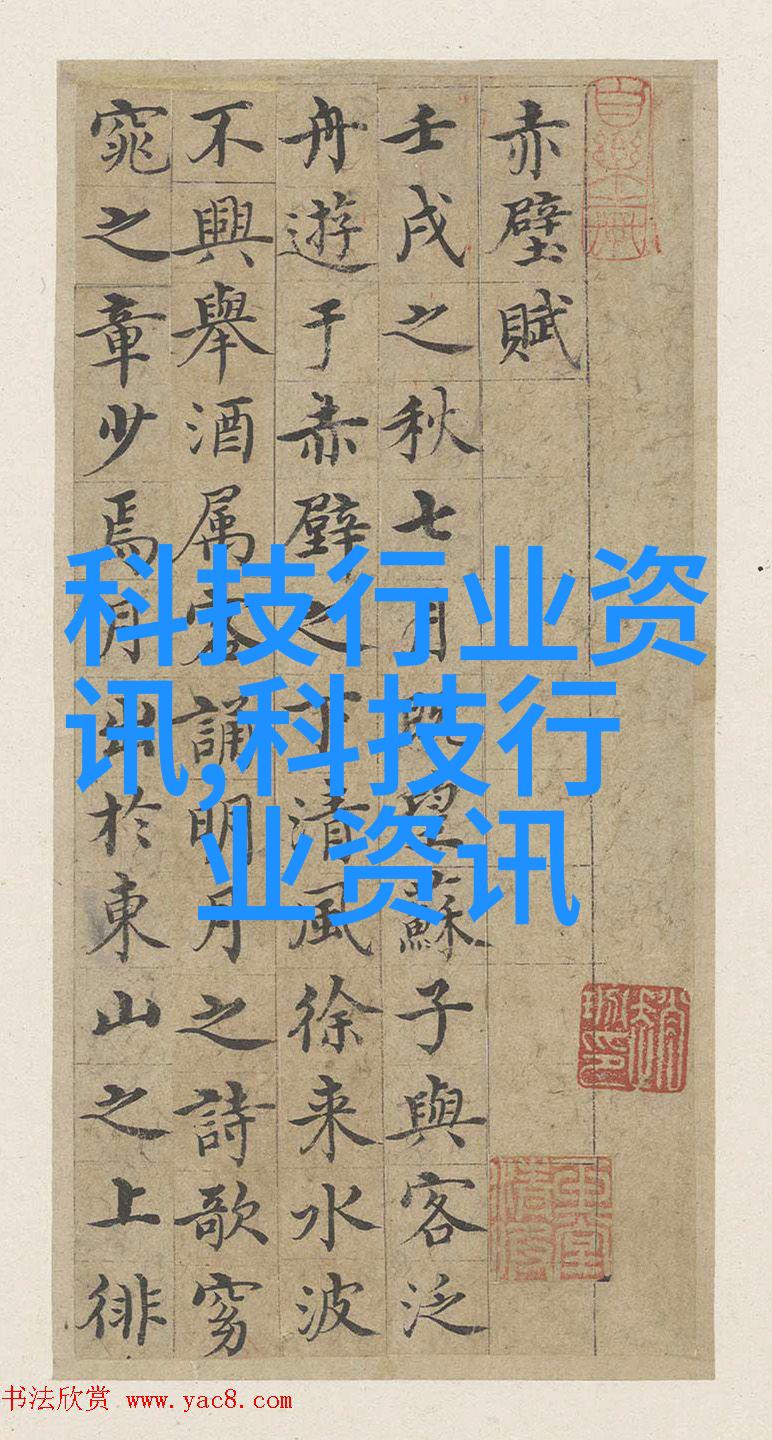 赤壁賦
壬戌之秋七月既望蘇子與客泛
舟遊于赤壁之下清風徐来水波
不興舉酒属客誦明月之詩歌窈
窕之章少焉月出於東山之上徘
科技行业资
讯,科技行
业资讯
书法欣赏 www.yac8.com